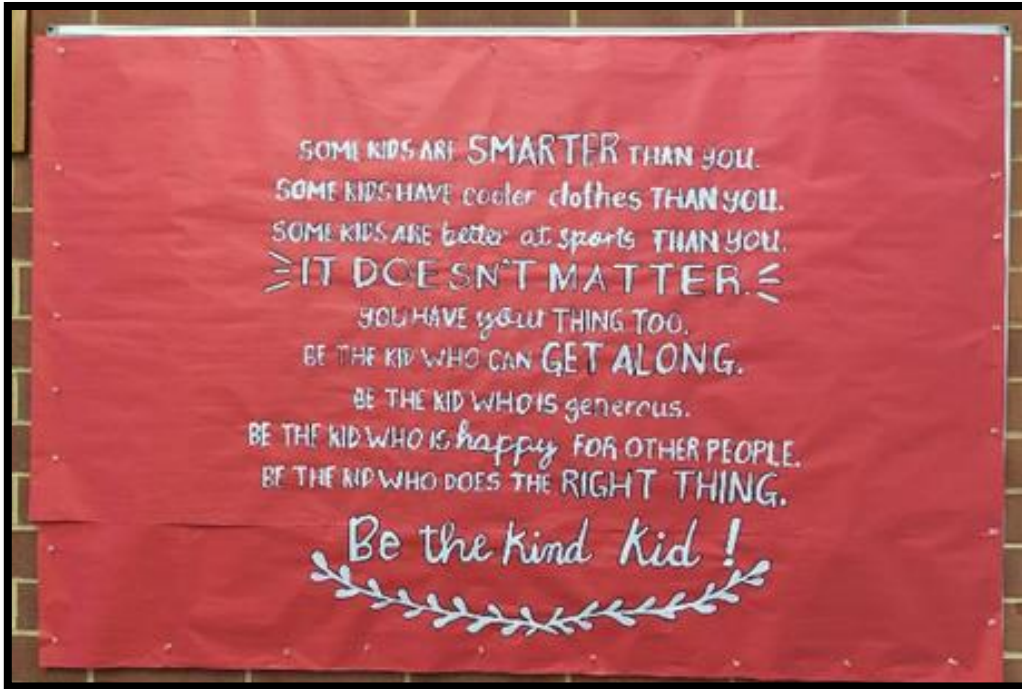 SOME KIDS ARE SMARTER THAN YOU.
SOME KIDS HAVE cooler clothes THAN YOU.
SOME KIDS ARE better at sports THAN YOU.
IT DOESN'T MATTER.
YOU HAVE your THING TOO.
BE THE KID WHO CAN GET ALONG.
BE THE KID WHO IS generous.
BE THE KID WHO IS happy FOR OTHER PEOPLE.
BE THE KID WHO DOES THE RIGHT THING.
Be the Kind Kid!